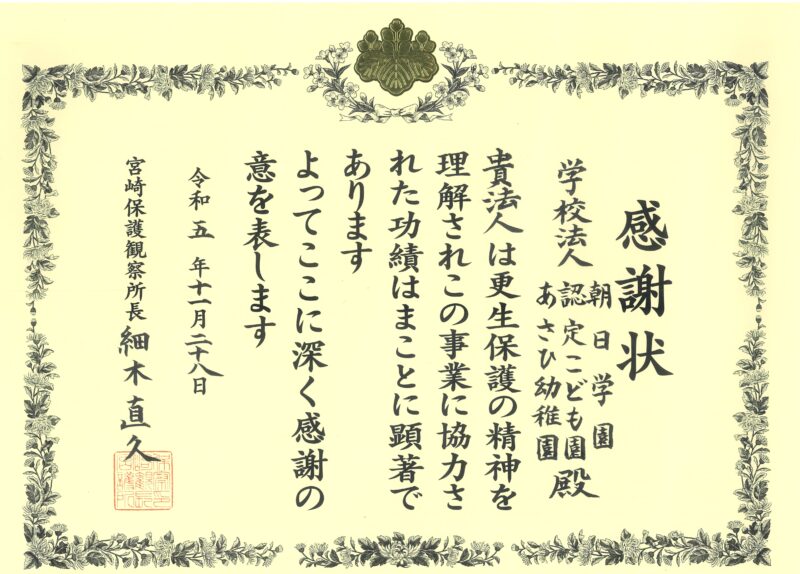 感謝状
学校法人 朝日学園
認定こども園
あさひ幼稚園 殿
貴法人は更生保護の精神を
理解されこの事業に協力さ
れた功績はまことに顕著で
あります
よってここに深く感謝の
意を表します
令和五年十一月二十八日
宮崎保護観察所長 細木直久